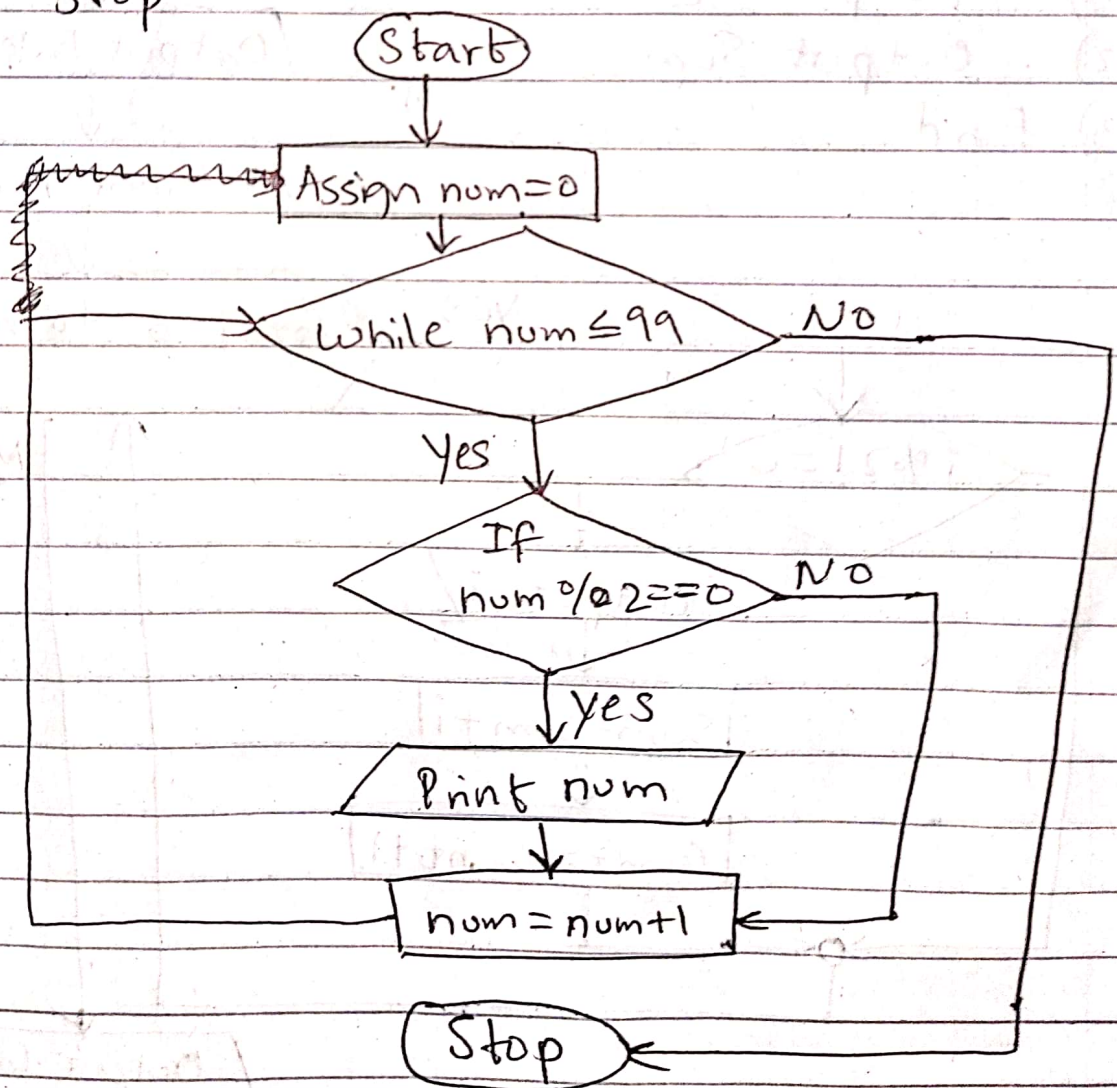 Stop
Start
Assign num=0
while num≤99
NO
Yes
If
num%2==0
NO
yes
Print num
num=num+1
Stop